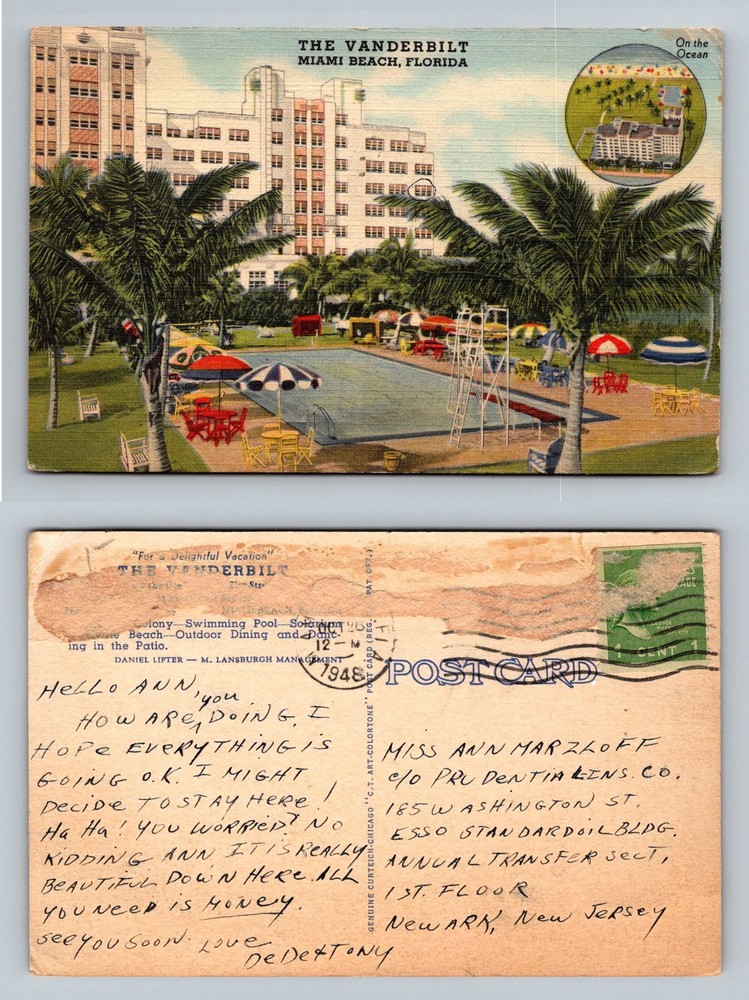 THE VANDERBILT
MIAMI BEACH, FLORIDA
On the
Ocean
"For a Delightful Vacation"
THE VANDERBILT
MIAMI BEACH, FLORIDA
Colony—Swimming Pool—Solarium
Beach—Outdoor Dining and Danc-
ing in the Patio.
DANIEL LIFTER — M. LANSBURGH MANAGEMENT
OCT
12 - M
1948
GEORGE
1 CENT 1
POST CARD
GENUINE CURTEICH-CHICAGO "C.T. ART-COLORTONE" POST CARD (REG. PAT. OFF.)
HELLO ANN,
HOW ARE you DOING, I
HOPE EVERYTHING IS
GOING O.K. I MIGHT
DECIDE TO STAY HERE!
Ha Ha! YOU WORRIED? NO
KIDDING ANN IT IS REALLY
BEAUTIFUL DOWN HERE. ALL
YOU NEED IS MONEY.
SEE YOU SOON. LOVE
DeDe & TONY
MISS ANN MARZLOFF
c/o PRUDENTIAL INS. CO.
185 WASHINGTON ST.
ESSO STANDARD OIL BLDG.
ANNUAL TRANSFER SECT,
1 ST. FLOOR
NEWARK, NEW JERSEY